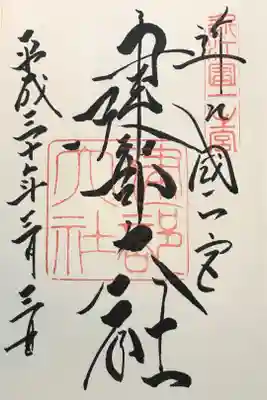 近江國一宮
建部大社
平成三十年三月三日
近江國一宮
建部大社